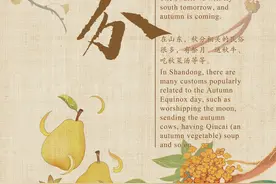 分
south tomorrow, and
autumn is coming.
在山东，秋分相关的民俗
很多，有祭月、送秋牛、
吃秋菜汤等等。
In Shandong, there are
many customs popularly
related to the Autumn
Equinox day, such as
worshipping the moon,
sending the autumn
cows, having Qincai (an
autumn vegetable) soup
and so on.